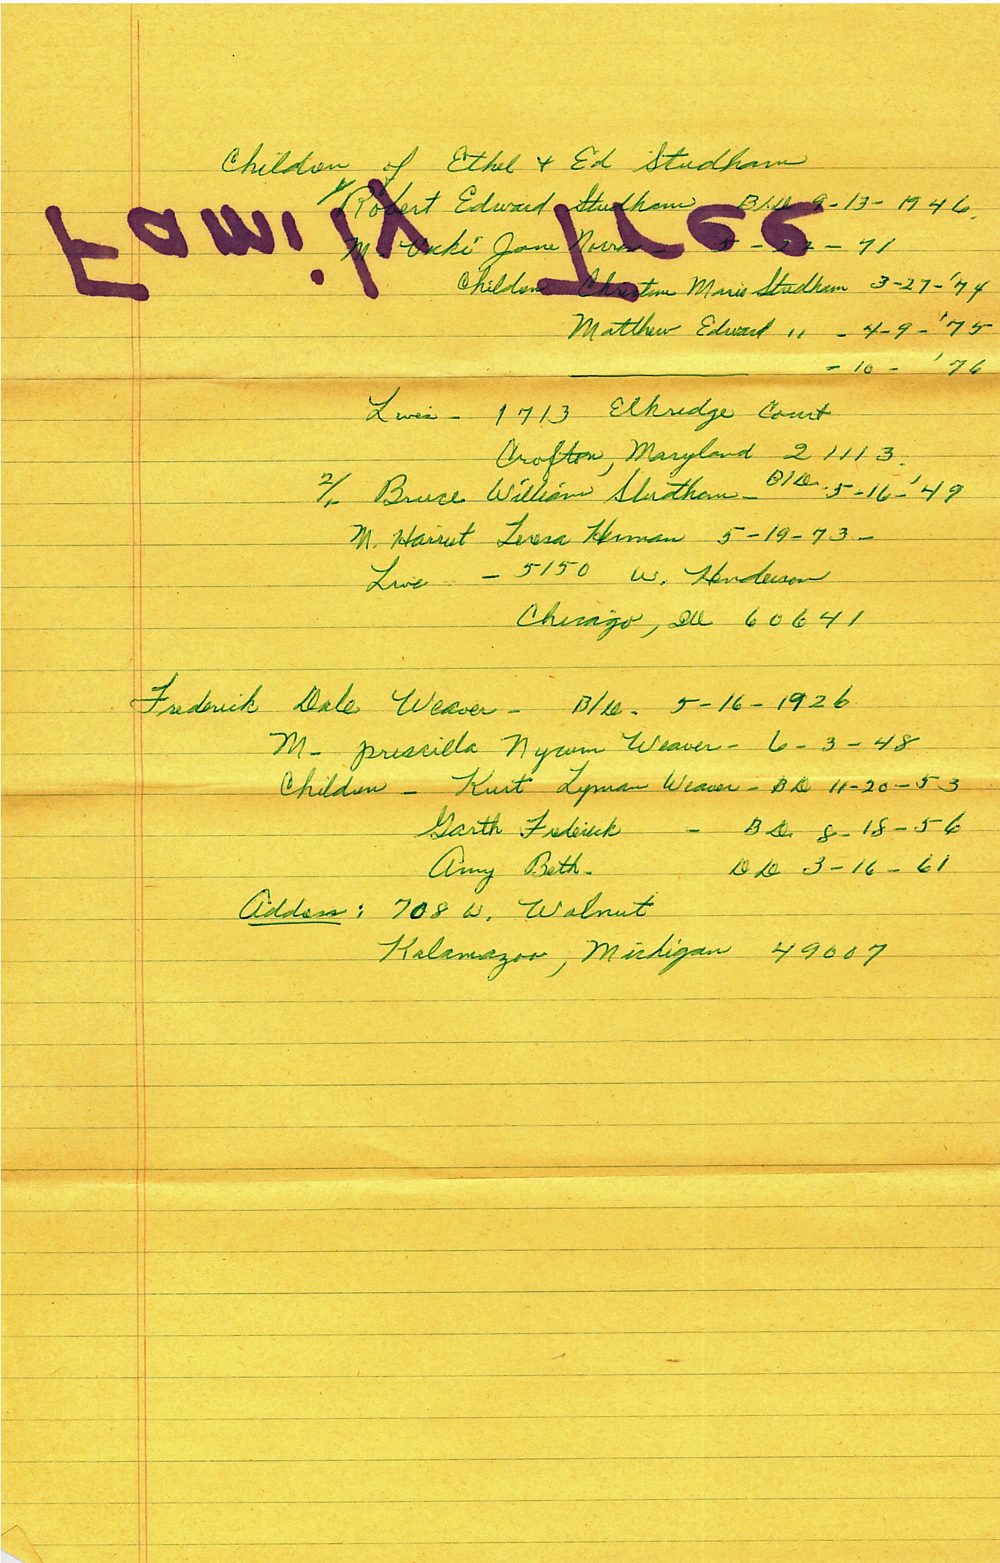 Children of Ethel + Ed Studham
Family Tree
1/ Robert Edward Studham B/D 9-13-1946.
M. Vicki Jane 5-22-71
Children Christine Marie Studham 3-27-'74
Matthew Edward " - 4-9-'75
- 10 - '76
Lives - 1713 Elkridge Court
Crofton, Maryland 21113.
2/ Bruce William Studham - B/D. 5-16-'49
M. Harriet Teresa Herman 5-19-73-
Live - 5150 W. Henderson
Chicago, Ill 60641
Frederick Dale Weaver - B/D. 5-16-1926
M- Priscilla Nycum Weaver - 6-3-48
Children - Kurt Lyman Weaver - BD 11-20-53
Garth Frederick - BD. 8-18-56
Amy Beth. BD 3-16-61
Address: 708 W. Walnut
Kalamazoo, Michigan 49007